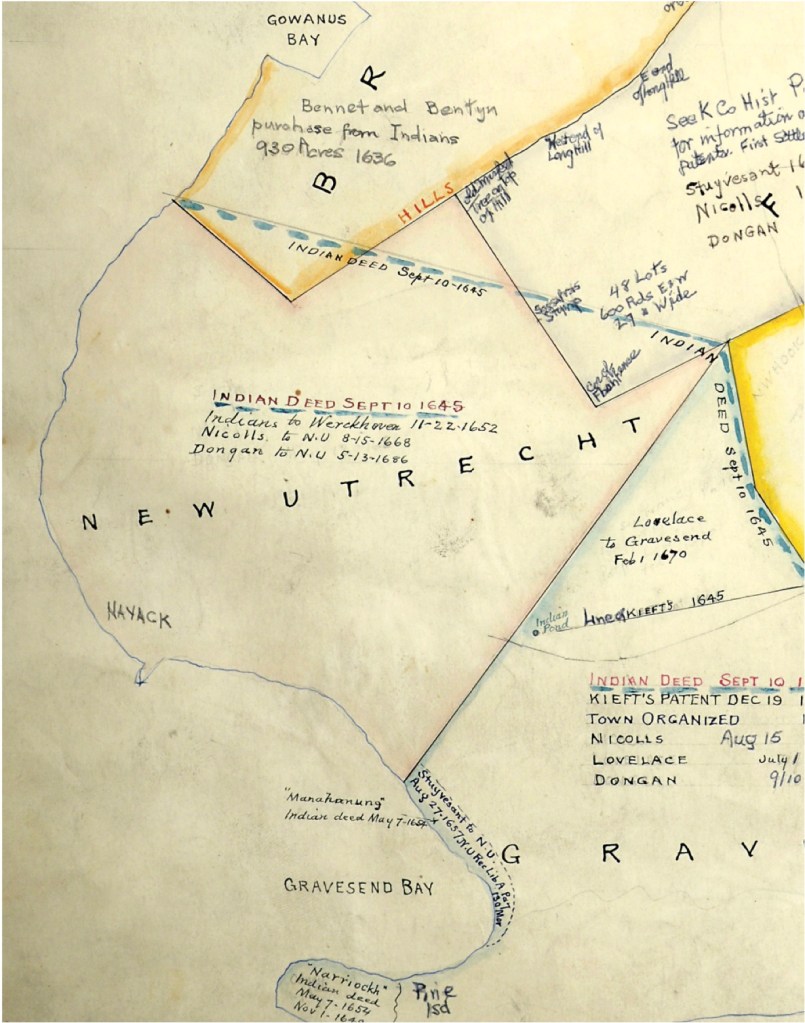 GOWANUS
BAY
B R
Bennet and Bentyn
purchase from Indians
930 Acres 1636
HILLS
Tree on top
of Hill
West end of
Long Hill
E end
of Long Hill
See K Co Hist
for information
Patents. First Settle
Stuyvesant 16
Nicolls
F
DONGAN
INDIAN DEED Sept 10-1645
Sassafras
Stump
48 Lots
600 Rds E & W
29 " Wide
INDIAN
DEED Sept 10 1645
INDIAN DEED SEPT 10 1645
Indians to Werckhoven 11-22-1652
Nicolls. to N.U 8-15-1668
Dongan to N.U 5-13-1686
NEW UTRECHT
Lovelace
to Gravesend
Feb 1 1670
NAYACK
Indian
Pond
Line of KIEFT'S 1645
INDIAN DEED SEPT 10 1
KIEFT'S PATENT DEC 19 1
TOWN ORGANIZED
NICOLLS Aug 15
LOVELACE July 1
DONGAN 9/10
"Manahanung"
Indian deed May 7-1654
Stuyvesant to N.U.
Aug 27-1657 N.U Rec Lib A
GRAV
GRAVESEND BAY
"Narriockh"
Indian deed
May 7-1654
Nov 1-1649
Pine
Isd